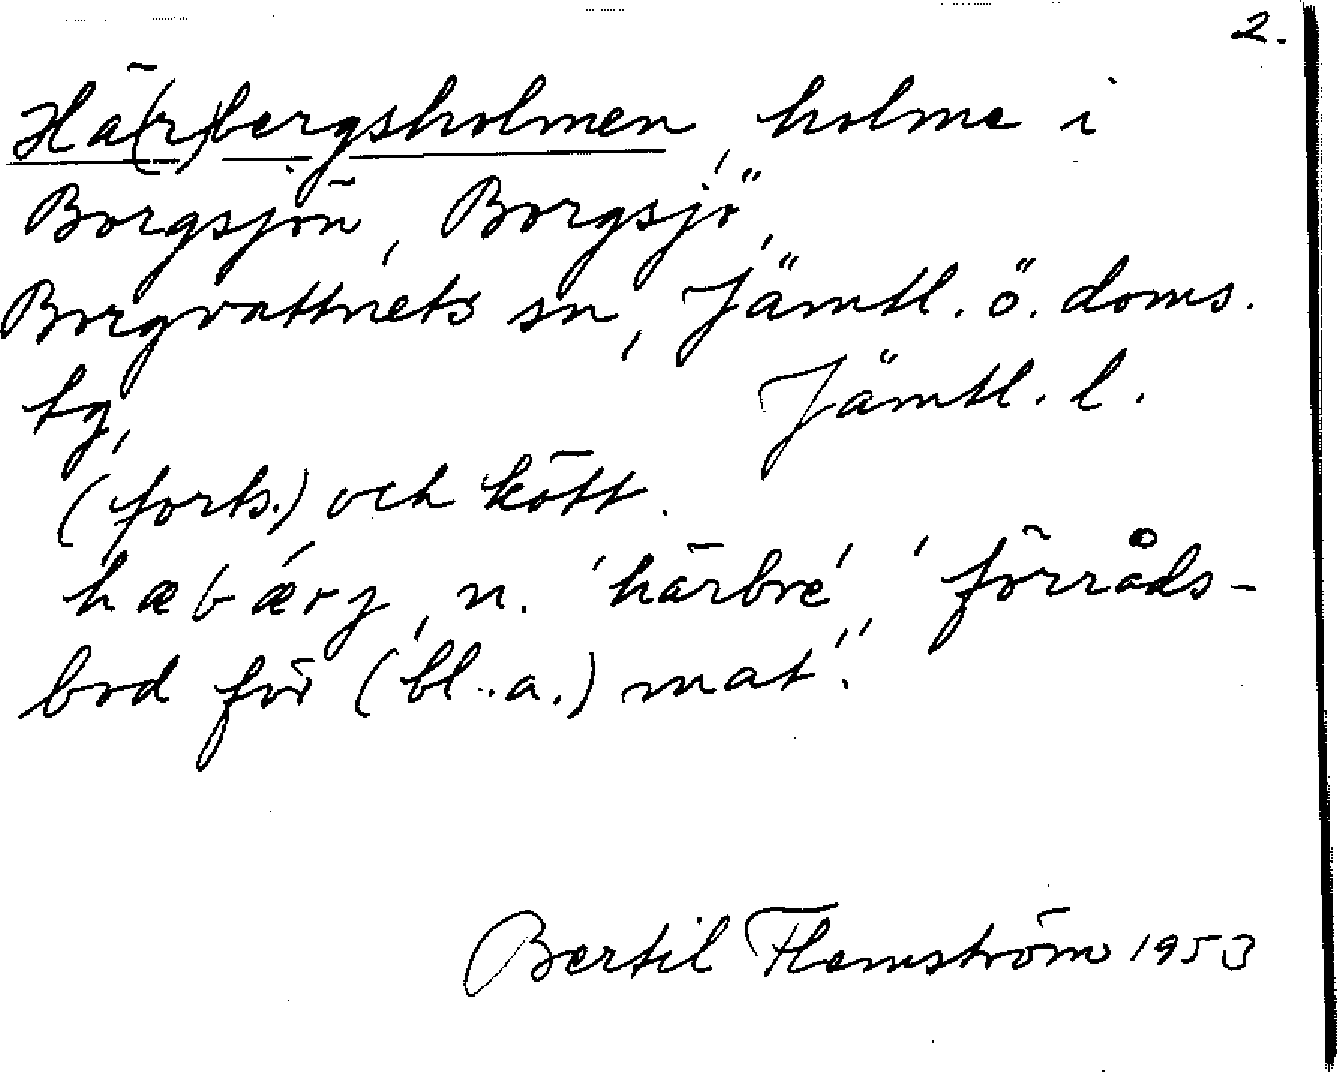 2.
Hä(r)bergsholmen, holme i
Borgsjön, Borgsjö,
Borgvattnets sn, Jämtl. ö. doms.
tg, Jämtl. l.
(forts.) och kött.
hæbærj, n. 'härbre', 'förråds-
bod för (bl.a.) mat'".
Bertil Flemström 1953